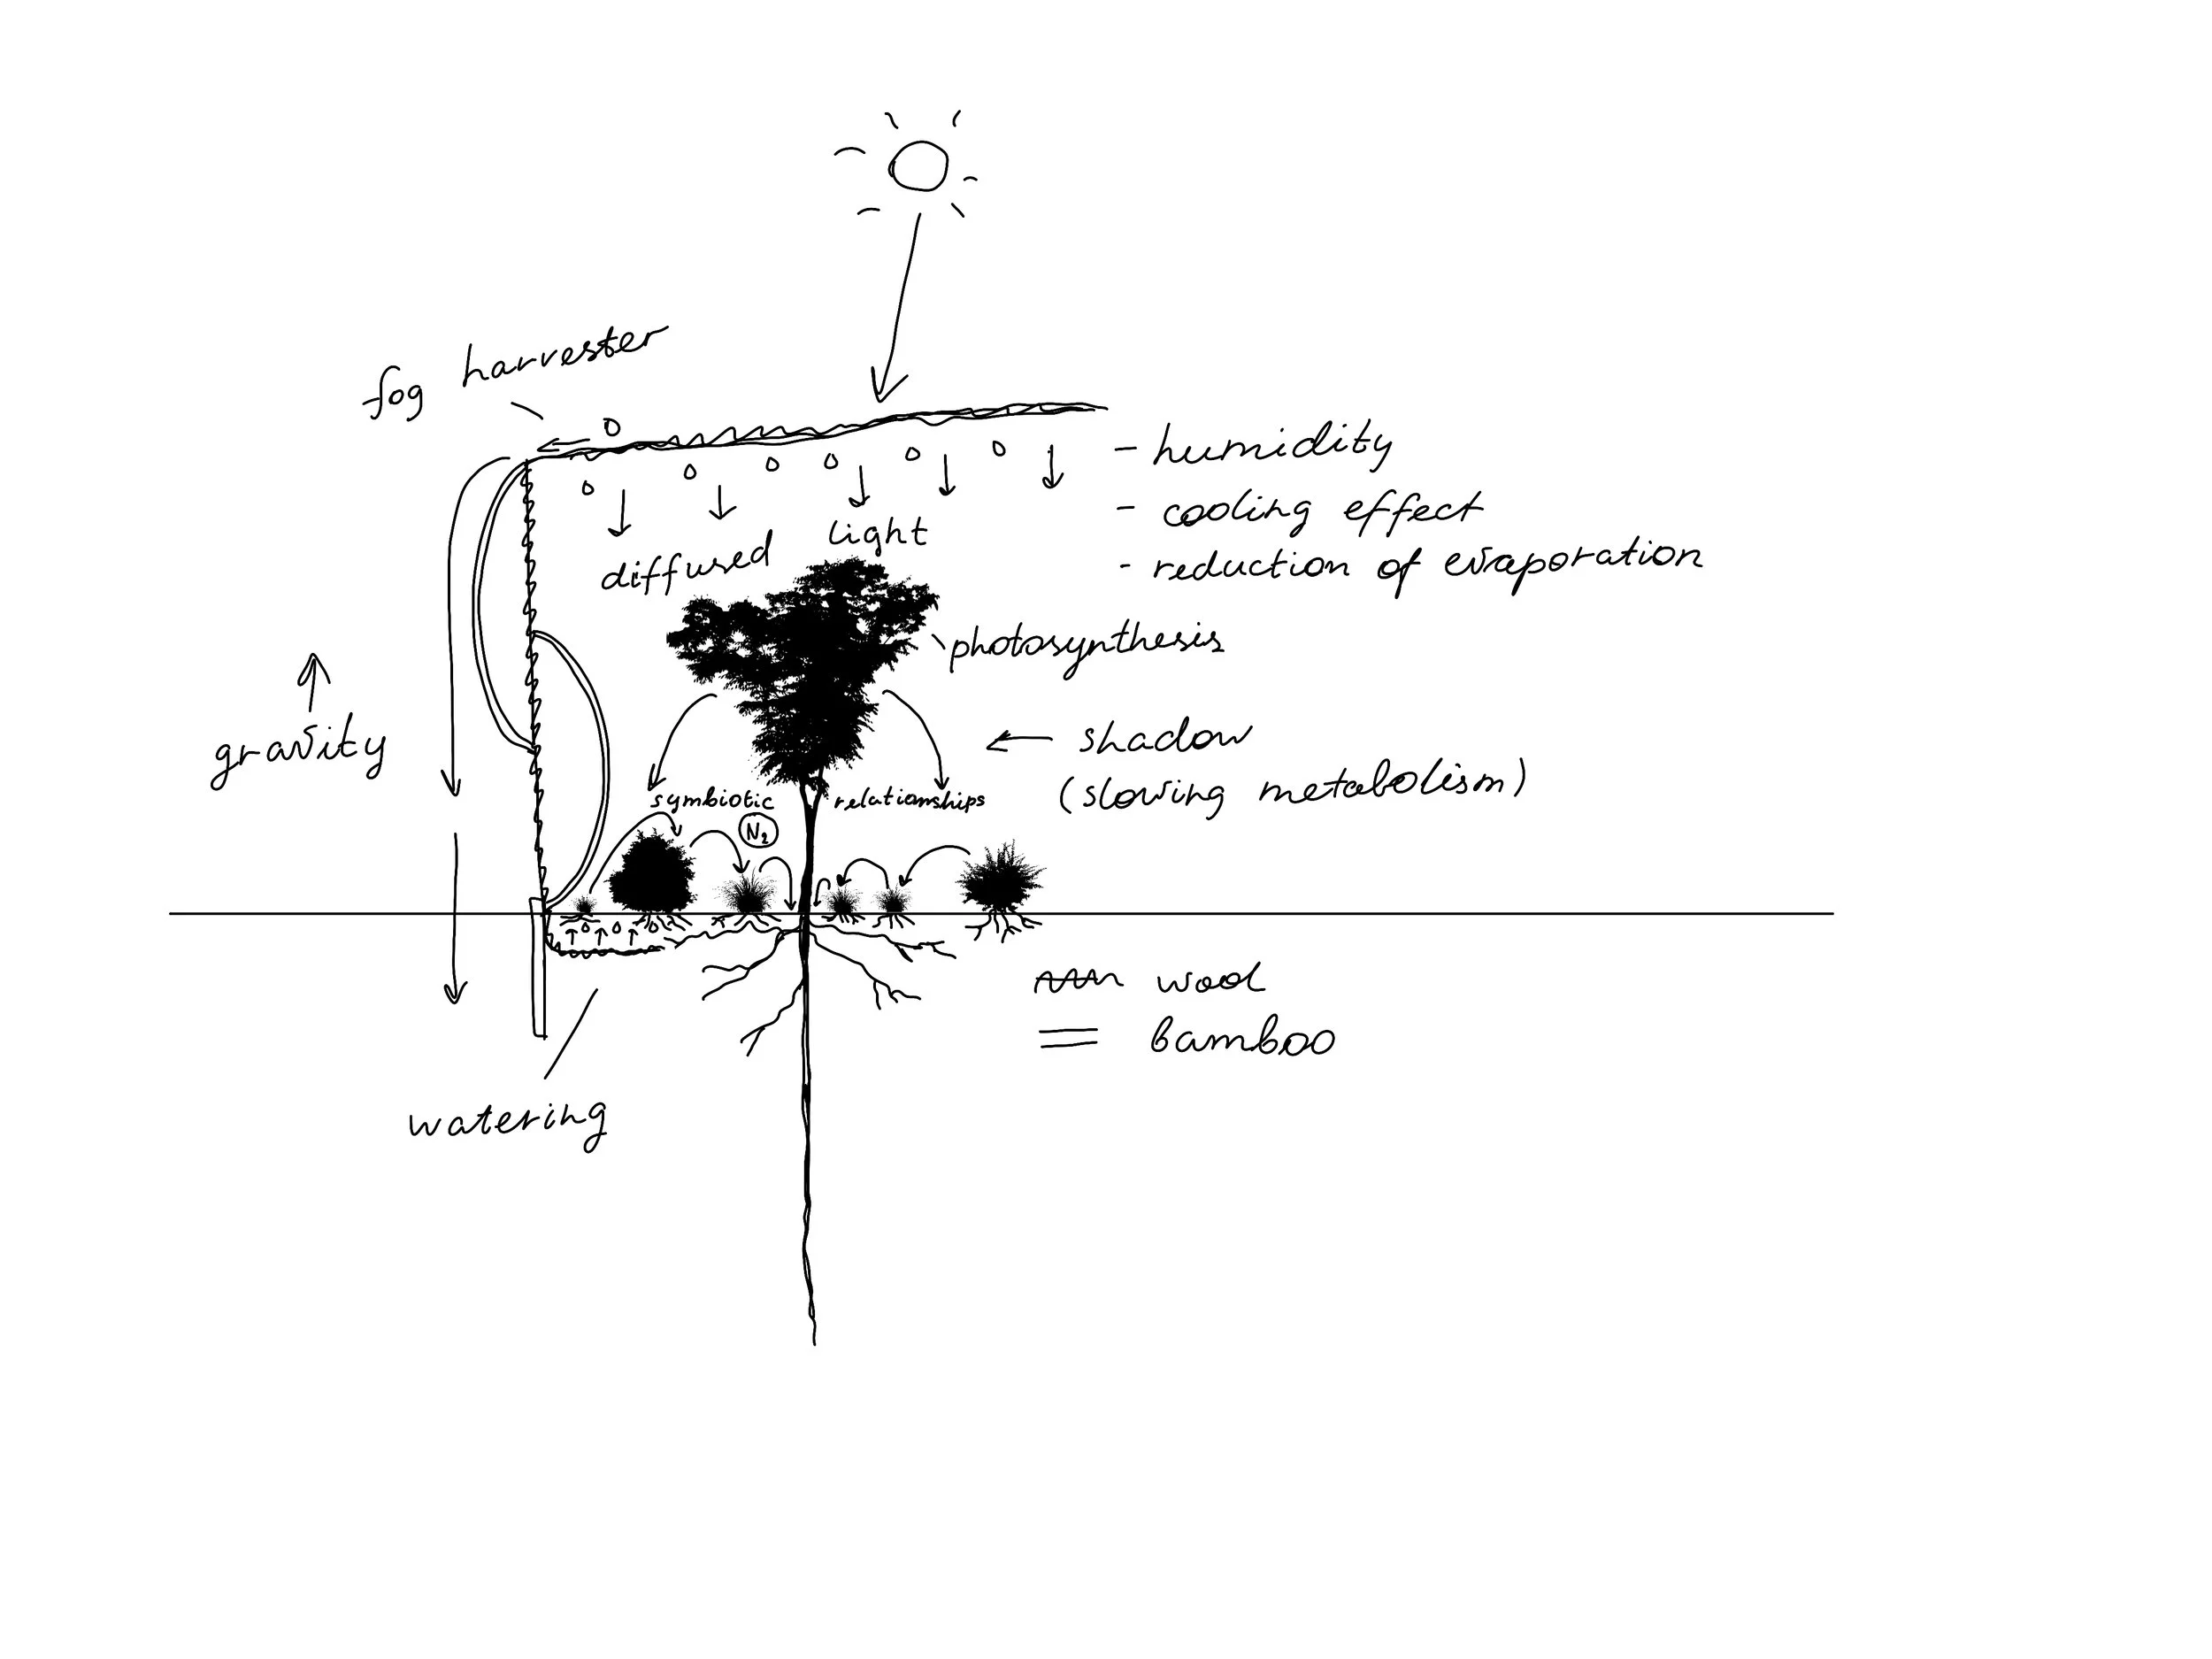 fog harvester
- humidity
- cooling effect
- reduction of evaporation
diffused light
photosynthesis
gravity
shadow
(slowing metabolism)
symbiotic relationships
N2
wool
bamboo
watering